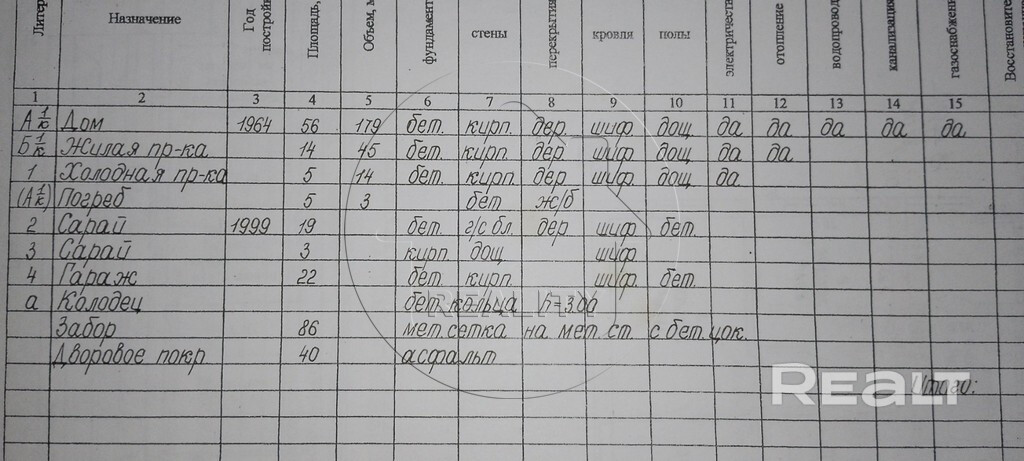 Литер Назначение Год постройки Площадь, Объем, м фундамент стены перекрытия кровля полы электричества отопление водопровод канализация газоснабжени Восстановител
1 2 3 4 5 6 7 8 9 10 11 12 13 14 15
А 1/к Дом 1964 56 179 бет. кирп. дер. шиф дощ. да да да да да
Б 1/к Жилая пр-ка 14 45 бет. кирп. дер. шиф. дощ. да да
1 Холодная пр-ка 5 14 бет. кирп. дер. шиф. дощ. да
(А 1/к) Погреб 5 3 бет ж/б
2 Сарай 1999 19 бет. г/с бл. дер. шиф. бет.
3 Сарай 3 кирп. дощ. шиф.
4 Гараж 22 бет. кирп. шиф. бет.
а Колодец бет. кольца
Забор 86 мет. сетка на мет. ст. с бет. цок.
Дворовое покр 40 асфальт
Итого:
REALT